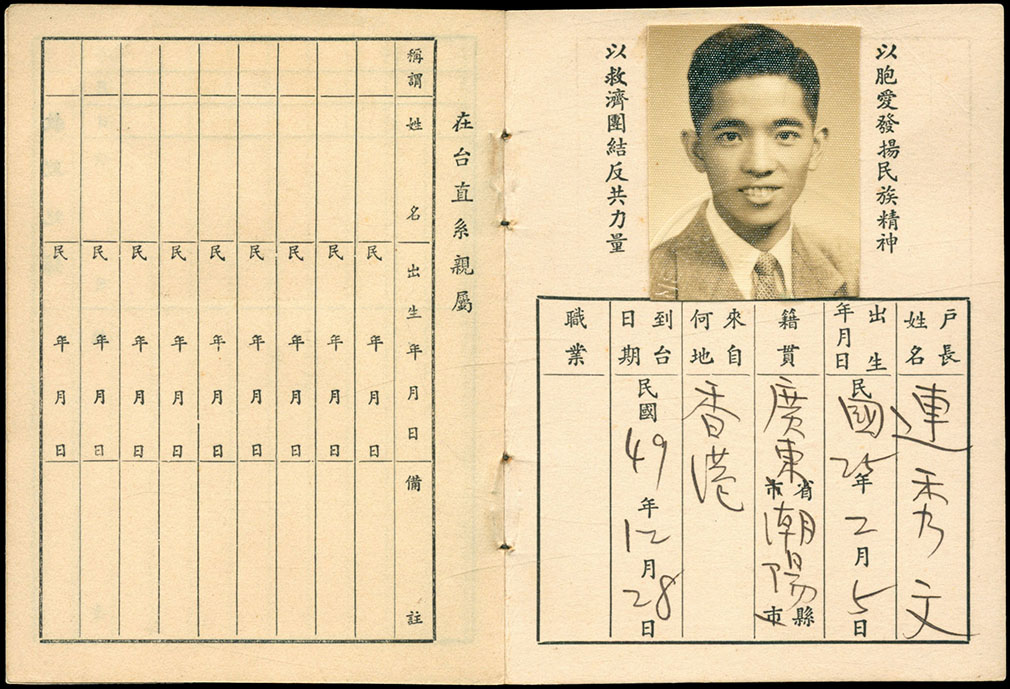 以胞愛發揚民族精神
以救濟團結反共力量
戶長姓名
連秀文
出生年月日
民國25年2月5日
籍貫
廣東省市潮陽縣市
來自何地
香港
到台日期
民國49年12月28日
職業
在台直系親屬
稱謂 姓名 出生年月日 備註
民 年 月 日
民 年 月 日
民 年 月 日
民 年 月 日
民 年 月 日
民 年 月 日
民 年 月 日
民 年 月 日
民 年 月 日